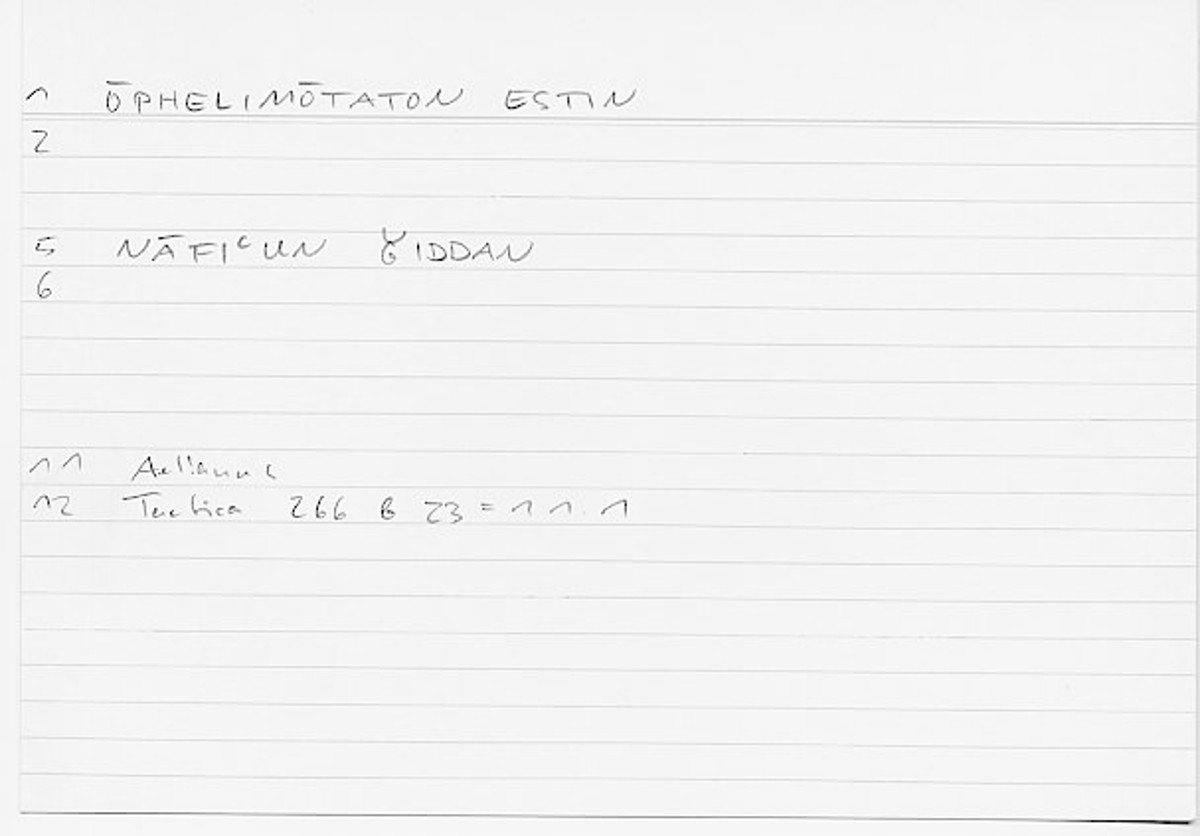 1 ŌPHELIMŌTATON ESTIN
2
5 NĀFIʿUN ǦIDDAN
6
11 Aelianus
12 Tactica 266 B 23 = 11.1